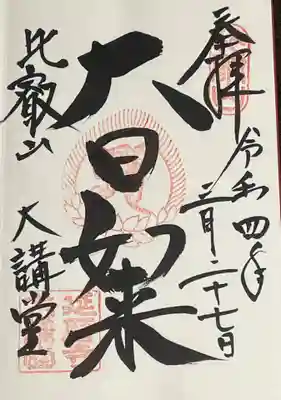 奉拝
令和四年
三月二十七日
大日如来
比叡山
大講堂
延暦寺